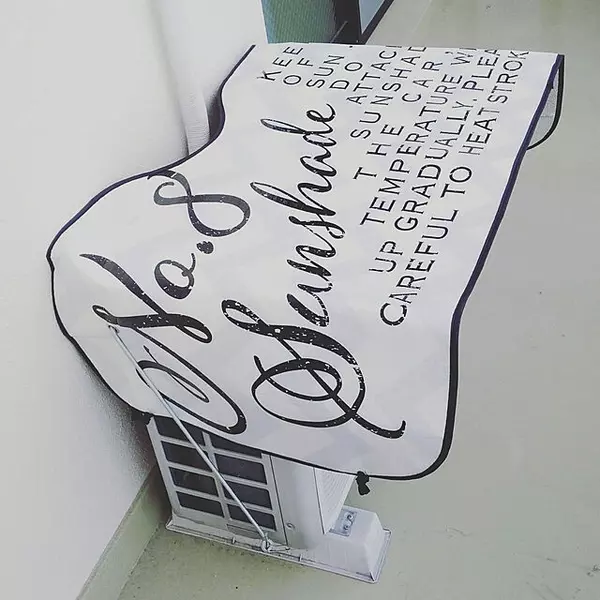 No.8
Sunshade
KEE
OFF
SUN
DO
ATTAC
T SUNSHAD
THE CAR,
TEMPERATURE WI
UP GRADUALLY, PLEA
CAREFUL TO HEAT STROK